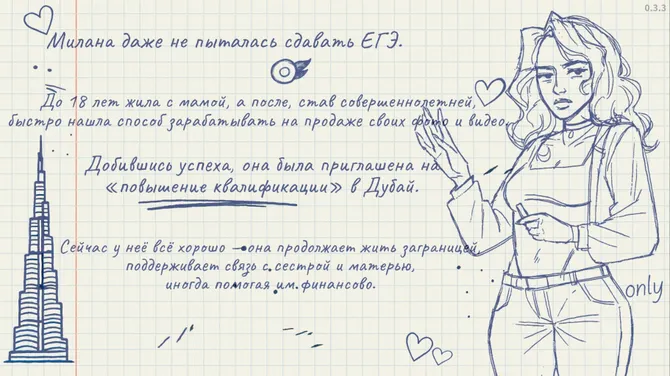 0.3.3
Милана даже не пыталась сдавать ЕГЭ.
До 18 лет жила с мамой, а после, став совершеннолетней,
быстро нашла способ зарабатывать на продаже своих фото и видео.
Добившись успеха, она была приглашена на
«повышение квалификации» в Дубай.
Сейчас у неё всё хорошо – она продолжает жить заграницей,
поддерживает связь с сестрой и матерью,
иногда помогая им финансово.
only